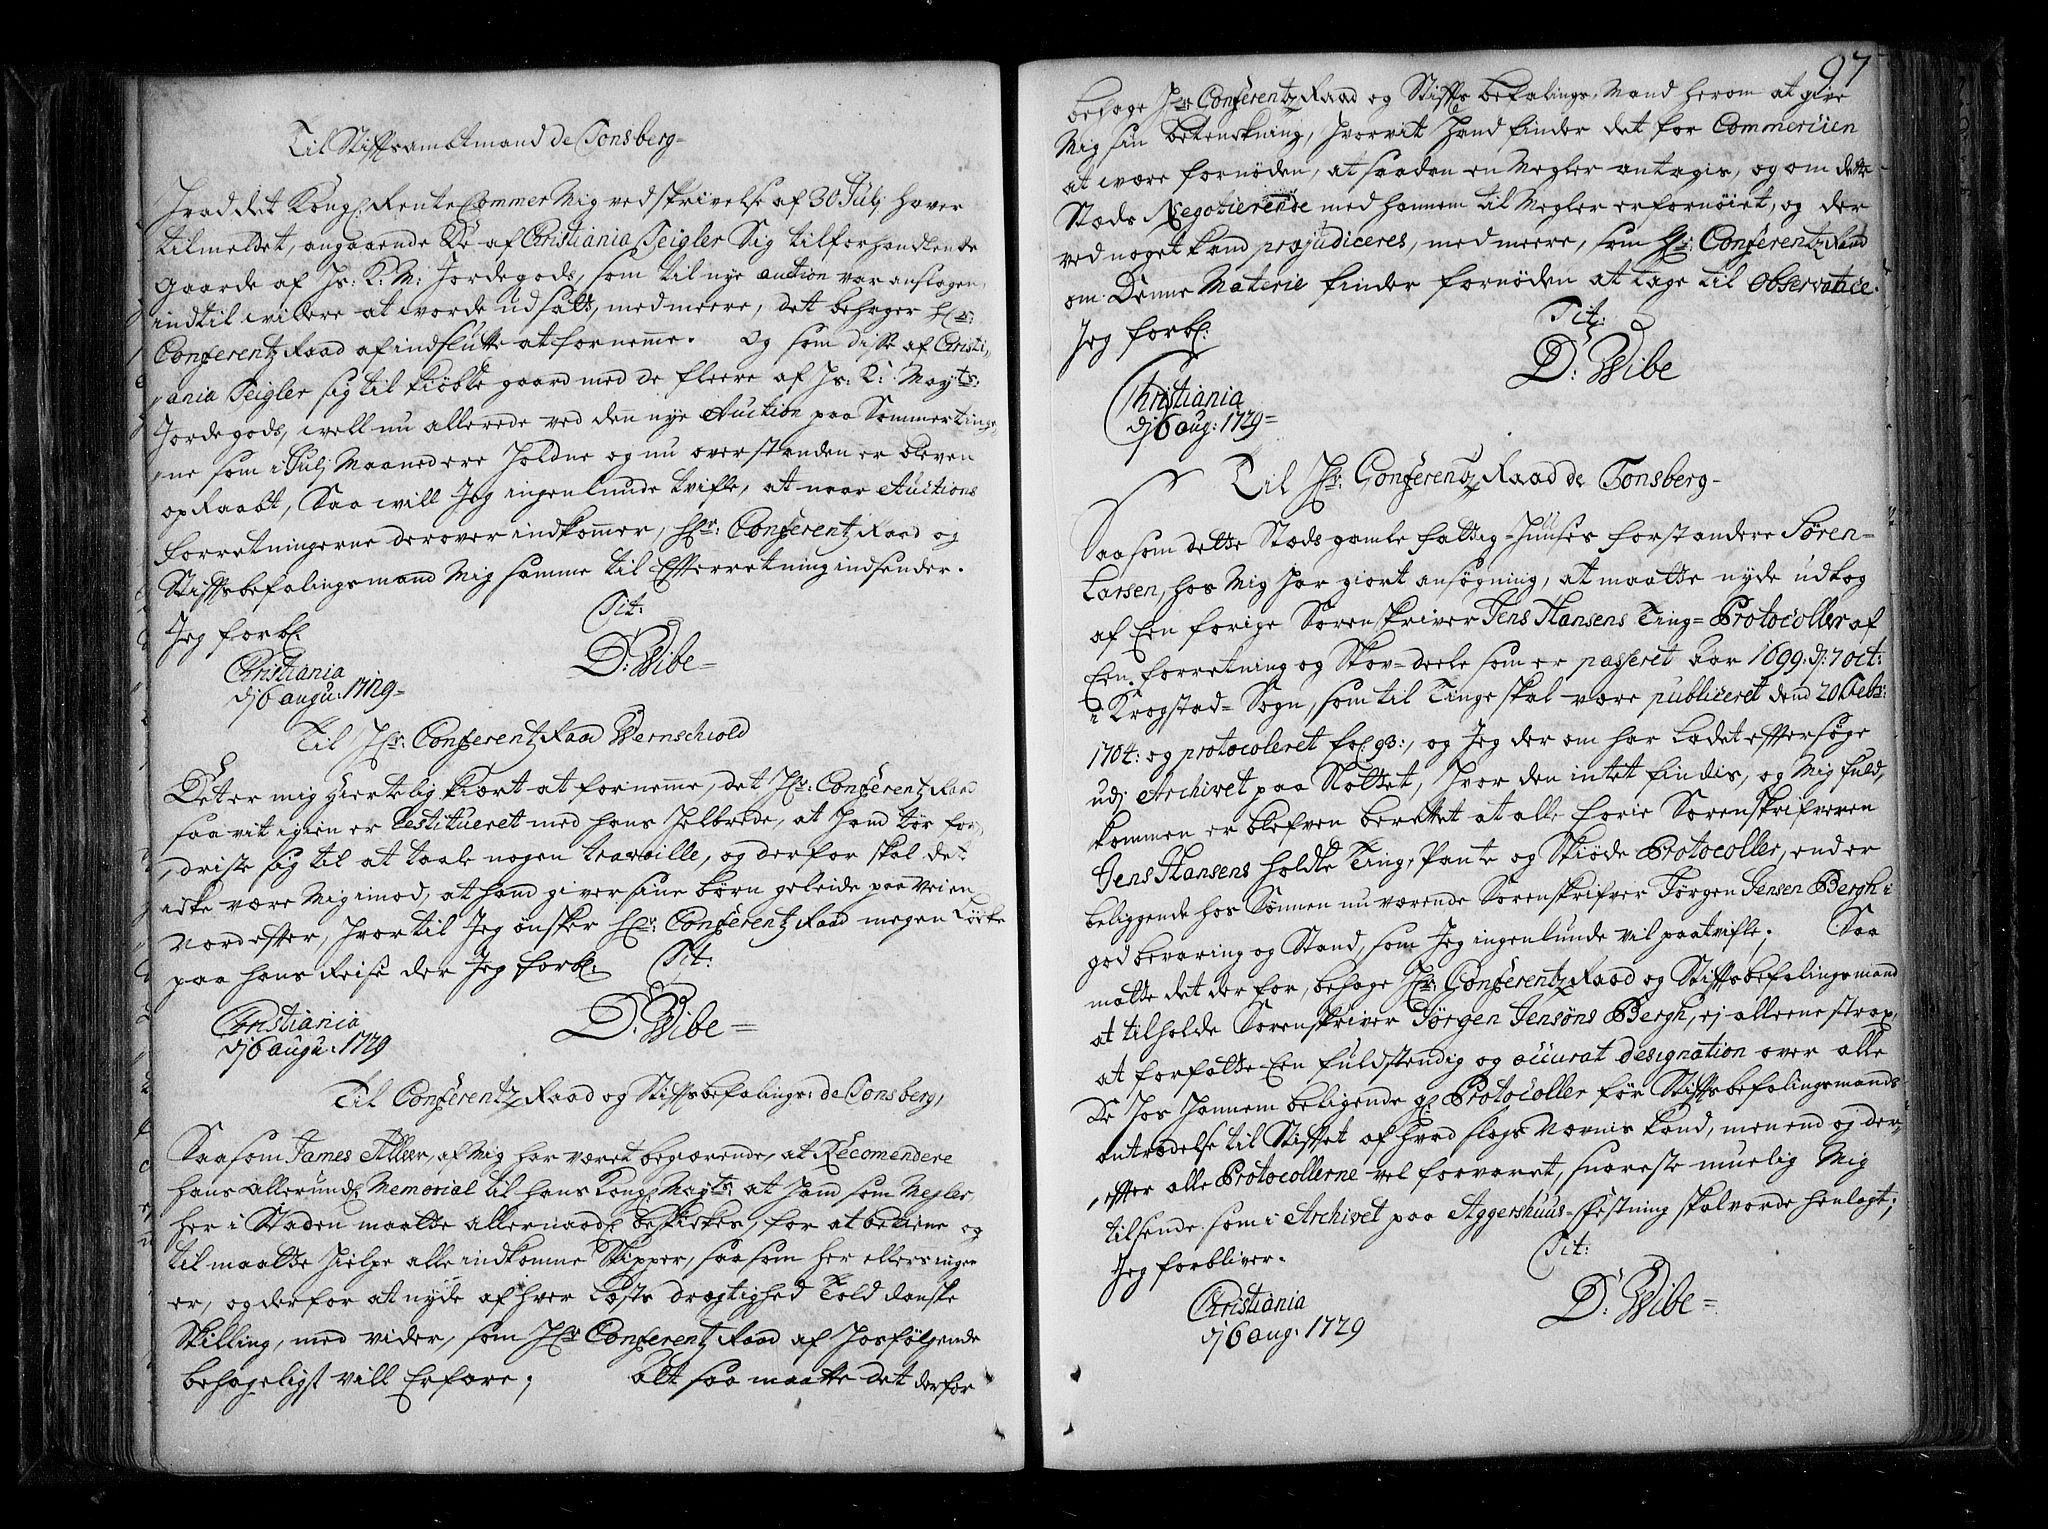 Til Stiftsamtmand de Tonsberg=
Hvad det Kongl: Rente Cammer Mig ved skrivelse af 30 Julj haver
tilmeldet, angaaende De af Christiania Seigler Sig tilforhandlende
gaarde af Hs: K: M: Jordegods, som til nye auction var anslagen,
indtil videre at vorde udsatt, med meere, det behager Hr:
Conferentz Raad af indslutte at fornemme. Og som disse af Christi,
,ania Seigler sig til kiøbte gaard med de fleere af Hs: K: Mayts:
Jordegods, vell nu allerede ved den nye Auction paa Sommer tinge,
,ne som i Julj Maaned ere holdne og nu overstanden er bleven
opRaabt, Saa vill Jeg ingenlunde tvifle, at naar Auctions
forretningerne derover indkommer, Hr: Conferentz Raad og
Stiftsbefalingsmand Mig samme til Efterretning indsender.
Jeg forbl: Tit:
Christiania D: Wibe=
dj 6 augu: 1729=
Til Hr: Conferentz Raad Wernschiold
Det er mig hiertelig kiært at fornemme, det Hr: Conferentz Raad
saavit igien er Restitueret med hans helbrede, at hand tør for,
,driste sig til at taale nogen travaille, og derfor skal det
icke være Mig imod, at hand giver sine børn geleide paa Veien
Nordefter, hvortil Jeg ønsker Hr: Conferentz Raad megen Løcke
paa hans Reise der Jeg forbl: Tit:
Christiania D: Wibe=
dj 6 augu: 1729
Til Conferentz Raad og Stiftsbefalings: de Tonsberg,
Saasom James Aller, af Mig har været begærende, at Recomendere
hans allerund: Memorial til hans Kongl Mayts: at hand som Megler
her i Staden maatte allernaad: beskickes, for at betiene og
til maatte hielpe alle indkomne Skipper, saasom her ellers ingen
er, og derfor at nyde af hver Læsts drægtighed Told danske
Skilling, med vider, som Hr Conferentz Raad af hosfølgende
behageligst vill Erfare; Alt saa maatte det derfor
97
behage Hr: Conferentz Raad og Stifts befalings, Mand herom at give
Mig sin betenckning, hvorvit hand finder det for Commercien
at være fornøden, at saaden en Megler antagis, og om dette
Stæds Negotierende med hannem til Megler er fornøiet, og der
ved noget kand præjudiceres, med meere, som Hr: Conferentz Raad
om Denne Materie finder fornøden at tage til Observatice.
Jeg forbl: Tit:
D: Wibe
Christiania
dj 6 aug: 1729=
Til Hr: Conferentz Raad de Tonsberg-
Saasom dette Stæds gamle fattig=Huuses forstandere Søren=
Larsen, hos Mig har giort ansøgning, at maatte nyde udtog
af Een forige Sorenskriver Jens Hansens Ting=Protocoller af
Een forretning og Skov=deele som er passeret aar 1699: d: 7 oct:
i Krogstad=Sogn, som til Tinge skal være publiceret dend 20 Febr:
1704: og protocoleret fol 93:, og Jeg der om har Ladet eftersøge
udj Archivet paa Slottet, hvor den intet findis, og Mig fuld,
kommen er blefven berettet at alle forie Sorenskrifveren
Jens Hansens holdte Ting, Pante og Skiøde Protocoller, end er
beliggende hos Sønnen nu værende Sorenskrifver Jørgen Jensen Bergh i
god bevaring og Stand, som Jeg ingenlunde vil paatvifle; Saa
maatte det derfor, behage Hr: Conferentz Raad og Stiftsbefalingsmand
at tilholde Sorenskriver Jørgen Jensøns Bergh, ej alleene strax,
at forfatte Een fuldstendig og accurat designation over alle
De hos hannem beligende gl: Protocoller før Stiftsbefalingsmands
antrædelse til Stiftet af hvad slags Navnis kand, men end og der,
,efter alle Protocollerne vel forvaret, snareste muelig Mig
tilsende som i Archivet paa Aggershuus=Festning skal vorde henlagt;
Jeg forbliver. Tit:
Christiania D: Wibe=
dj 6 aug: 1729